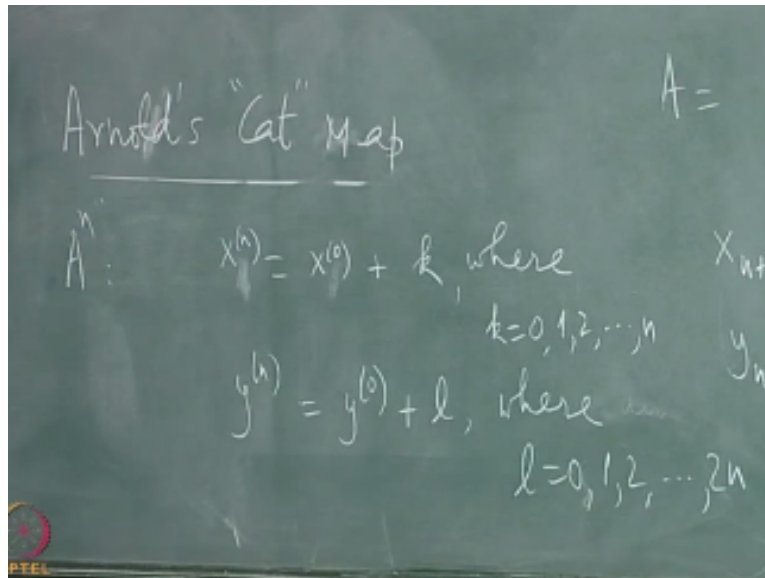 Arnold's "Cat" Map
A =
Aⁿ : x⁽ⁿ⁾ = x⁽⁰⁾ + k, where
k=0,1,2,...,n
xₙ₊
yₙ
y⁽ⁿ⁾ = y⁽⁰⁾ + l, where
l=0,1,2,...,2n
PTEL